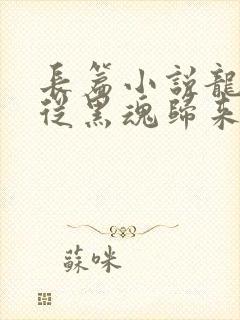 長篇小說龍
從黑魂歸來
蘇咪